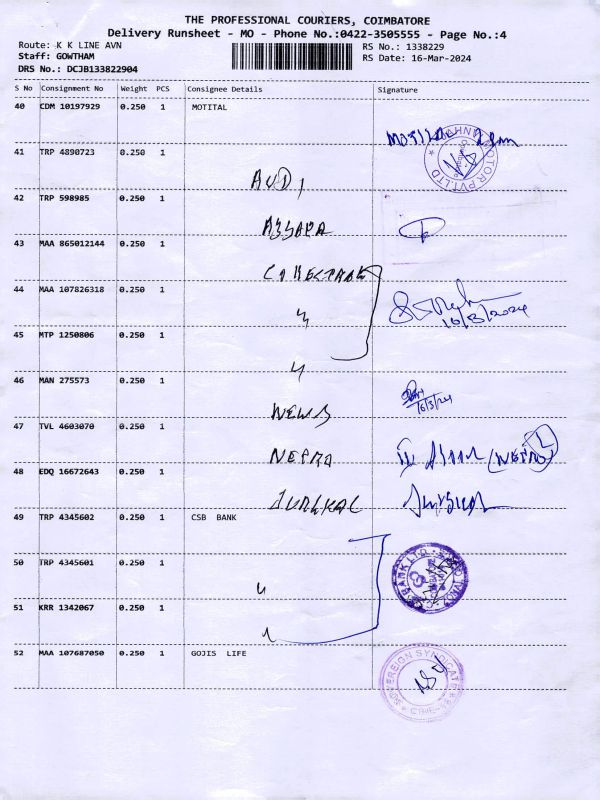 THE PROFESSIONAL COURIERS, COIMBATORE
Delivery Runsheet - MO - Phone No.:0422-3505555 - Page No.:4
Route: K K LINE AVN
RS No.: 1338229
Staff: GOWTHAM
RS Date: 16-Mar-2024
DRS No.: DCJB133822904
S No Consignment No Weight PCS Consignee Details Signature
40 CDM 10197929 0.250 1 MOTITAL
41 TRP 4890723 0.250 1
AUDI
42 TRP 598985 0.250 1
43 MAA 865012144 0.250 1
44 MAA 107826318 0.250 1
16/3/2024
45 MTP 1250806 0.250 1
46 MAN 275573 0.250 1
16/3/24
NEWS
47 TVL 4603070 0.250 1
NEPRO (NEPRO)
48 EDQ 16672643 0.250 1
49 TRP 4345602 0.250 1 CSB BANK
50 TRP 4345601 0.250 1
51 KRR 1342067 0.250 1
52 MAA 107687050 0.250 1 GOJIS LIFE